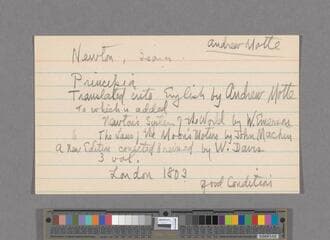 Andrew Motte
Newton, Isaac.
Principia
Translated into English by Andrew Motte
To which is added
Newton's System of the World by W. Emerson
The Laws of the Moon's Motion by John Machin
A New Edition corrected & revised by W. Davis
3 vol.
London 1803
Good Condition